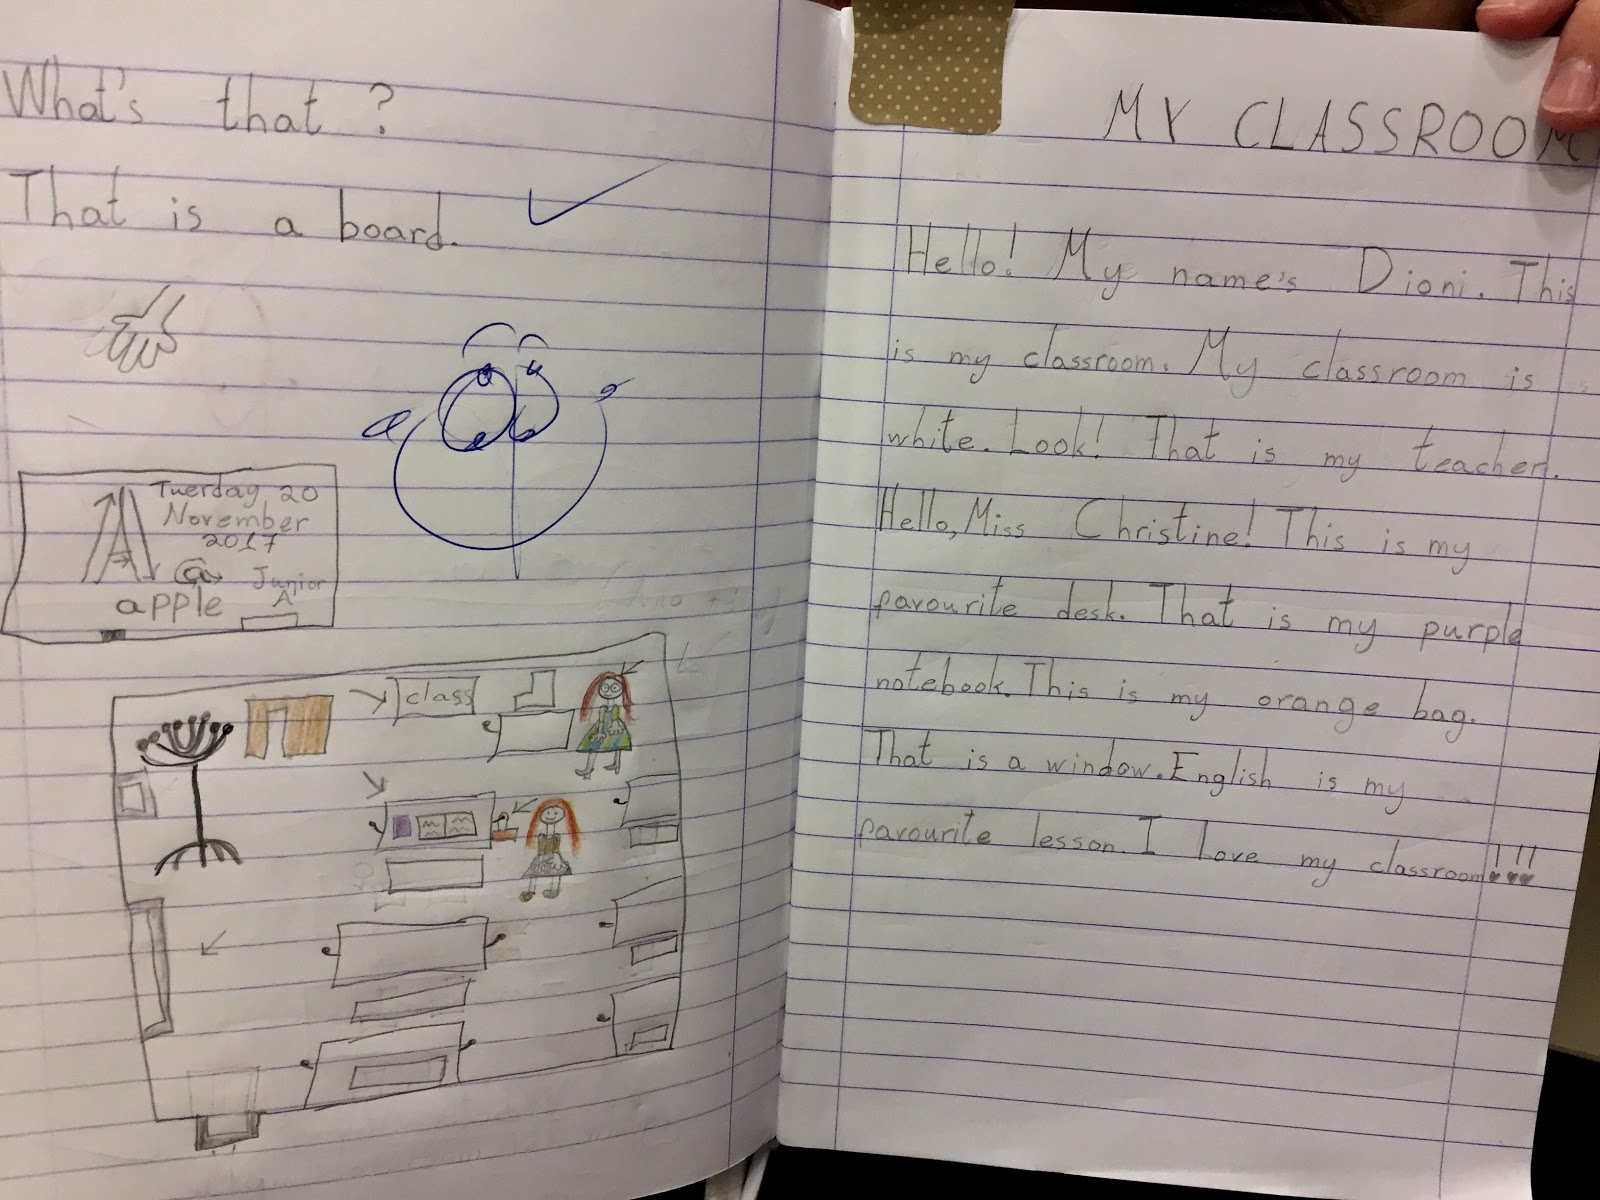 What's that ?
That is a board.
Tuerday, 20
November
2017
Junior
A
apple
class
MY CLASSROOM
Hello! My name's Dioni. This
is my classroom. My classroom is
white. Look! That is my teacher.
Hello, Miss Christine! This is my
favourite desk. That is my purple
notebook. This is my orange bag.
That is a window. English is my
favourite lesson. I love my classroom!!!